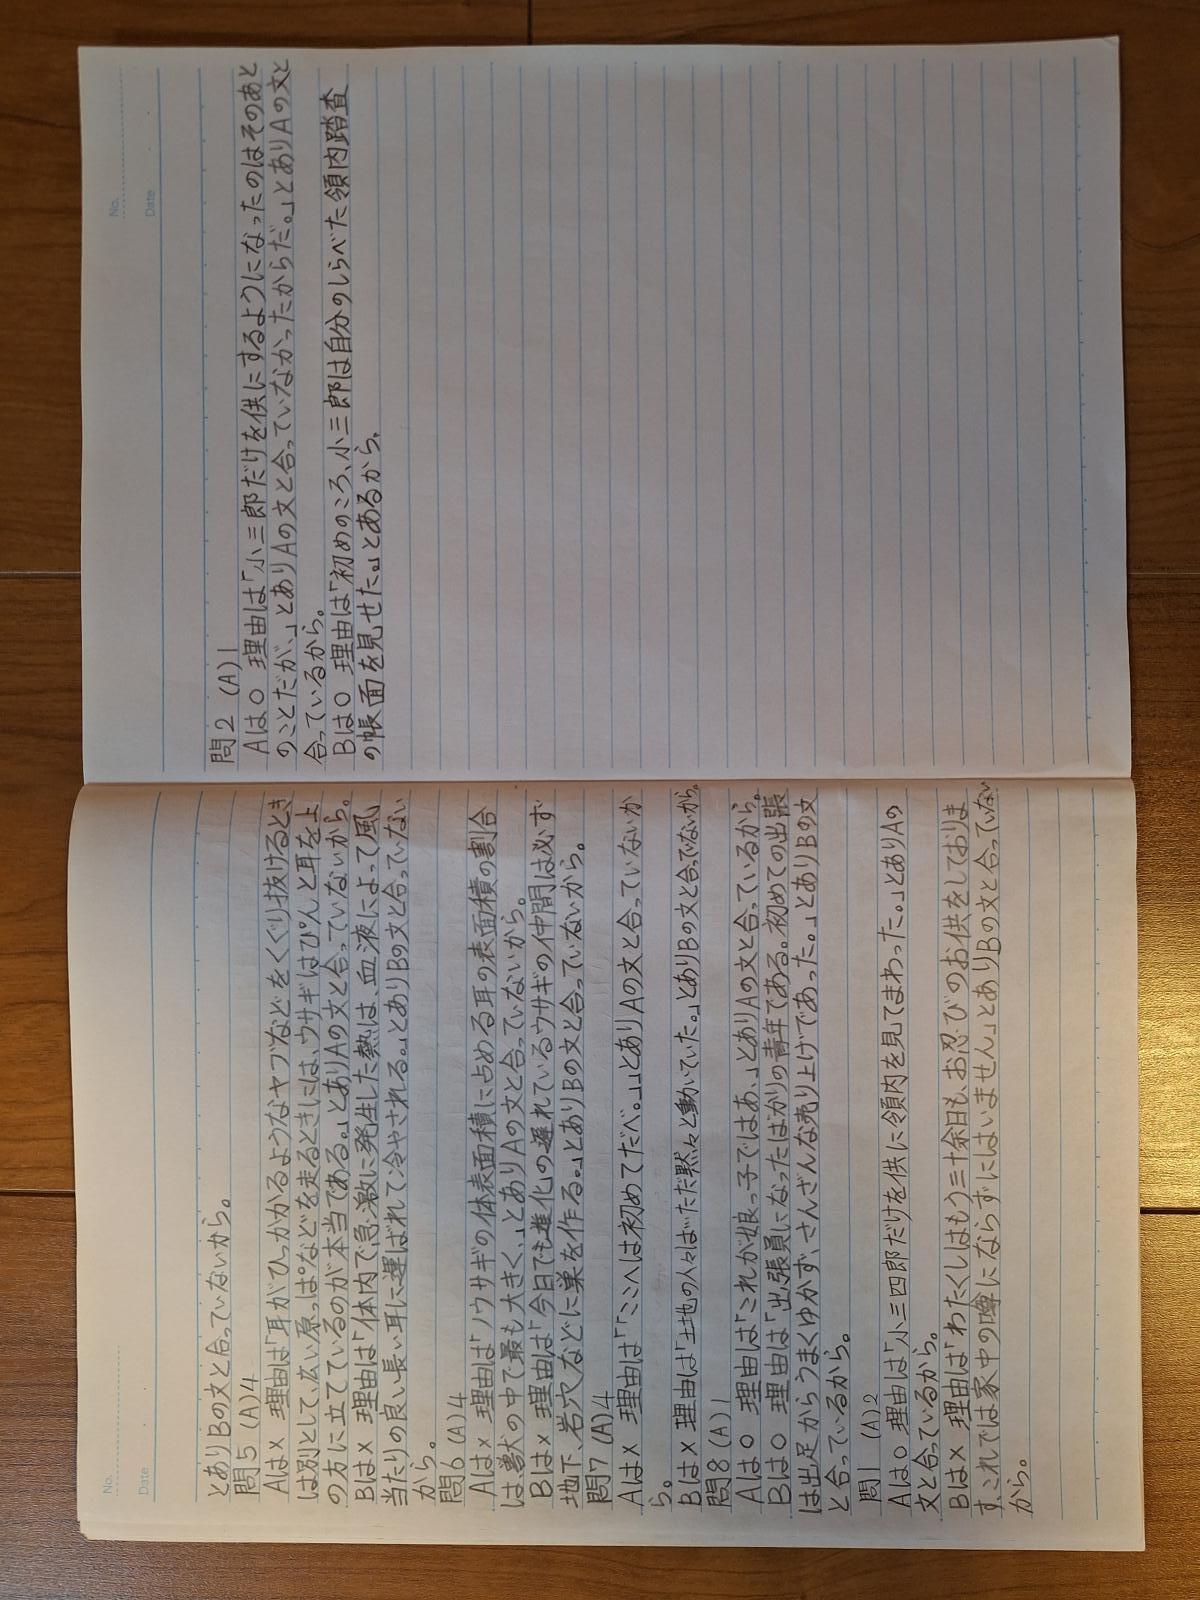 No.
Date
とありBの文と合っていないから。
問5 (A)4
Aは× 理由は「耳がひっかかるようなヤブなどをくぐり抜けるとき
は別として、広い原っぱなどを走るときには、ウサギはぴんと耳を上
の方に立てているのが本当である。」とありAの文と合っていないから。
Bは× 理由は「体内で急激に発生した熱は、血液によって風
当たりの良い長い耳に運ばれて冷やされる。」とありBの文と合っていない
から。
問6 (A)4
Aは× 理由は「ノウサギの体表面積に占める耳の表面積の割合
は、獣の中で最も大きく、」とありAの文と合っていないから。
Bは× 理由は「今日でも進化の遅れているウサギの仲間は必ず
地下、岩穴などに巣を作る。」とありBの文と合っていないから。
問7 (A)4
Aは× 理由は「「ここへは初めてだべ。」」とありAの文と合っていないか
ら。
Bは× 理由は「土地の人々はただ黙々と動いていた。」とありBの文と合ってないから。
問8 (A)1
Aは○ 理由は「これが娘っ子ではあ、」とありAの文と合っているから。
Bは○ 理由は「出張員になったばかりの青年である。初めての出張
は出足からうまくゆかず、さんざんな売り上げであった。」とありBの文
と合っているから。
問1 (A)2
Aは○ 理由は「小三四郎だけを供に領内を見てまわった。」とありAの
文と合っているから。
Bは× 理由は「わたくしはもう三十余日も、お忍びのお供をしておりま
す、これでは家中の噂にならずにはいません」とありBの文と合っていない
から。
No.
Date
問2 (A)1
Aは○ 理由は「小三郎だけを供にするようになったのはそのあと
のことだが、」とありAの文と合っていなかったからだ。」とありAの文と
合っているから。
Bは○ 理由は「初めのころ、小三郎は自分のしらべた領内踏査
の帳面を見せた。」とあるから。